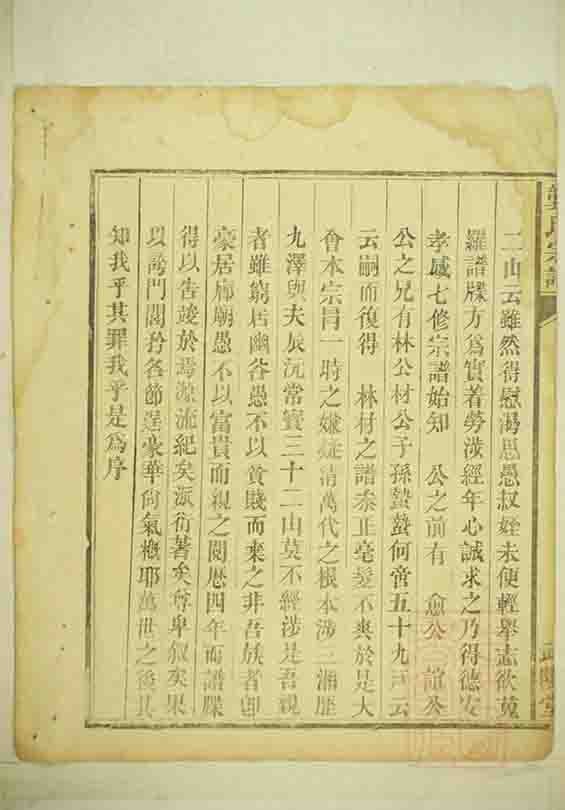 龔氏宗譜
武陵堂
二山云雖然得慰渴思愚叔姪未便輕舉志欲蒐
羅譜牒方爲實着勞涉經年心誠求之乃得德安
孝感七修宗譜始知 公之前有 愈公 誼公
公之兄有林公材公子孫蟄蟄何啻五十九 云
云嗣而復得 林材之譜叅正毫髮不爽於是大
會本宗冐一時之嫌疑清萬代之根本涉三湘歷
九澤與夫辰沅常寶三十二山莫不經涉是吾親
者雖窮居幽谷愚不以貧賤而棄之非吾族者卽
豪居廊廟愚不以富貴而親之閱歷四年而譜牒
得以告竣於焉源流紀矣派衍著矣尊卑叙矣果
以誇門閥矜名節逞豪華尙氣槪耶萬世之後其
知我乎其罪我乎是爲序